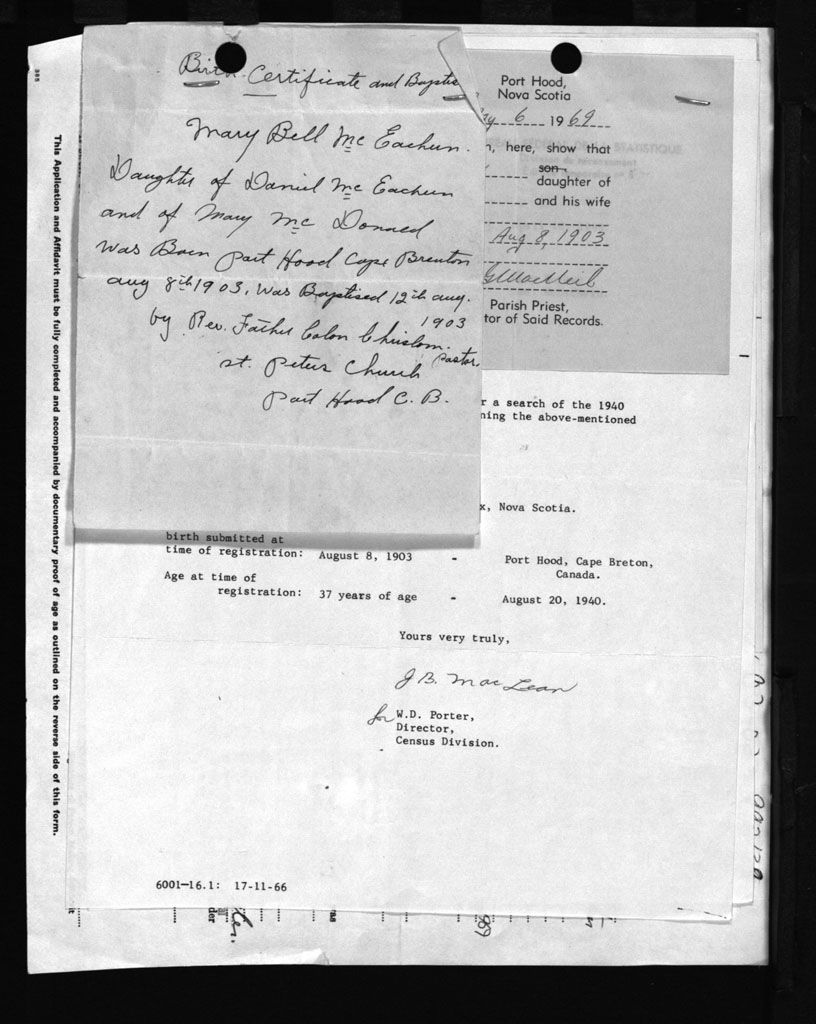 Birth Certificate and Baptis
Mary Bell Mc Eachern.
Daughter of Daniel Mc Eachern
and of Mary Mc Donald
was Born Port Hood Cape Breuton
aug 8th 1903. was Baptised 12th aug.
1903
by Rev. Father Colon Chisolm.
Pastor.
st. Peters Church
Port Hood C. B.
Port Hood,
Nova Scotia
6 1969
STATISTIQUE
n, here, show that
son
daughter of
and his wife
Aug 8, 1903
Parish Priest,
tor of Said Records.
r a search of the 1940
ning the above-mentioned
x, Nova Scotia.
birth submitted at
time of registration: August 8, 1903 - Port Hood, Cape Breton,
Canada.
Age at time of
registration: 37 years of age - August 20, 1940.
Yours very truly,
J B. MacLean
for W.D. Porter,
Director,
Census Division.
6001-16.1: 17-11-66
This Application and Affidavit must be fully completed and accompanied by documentary proof of age as outlined on the reverse side of this form.